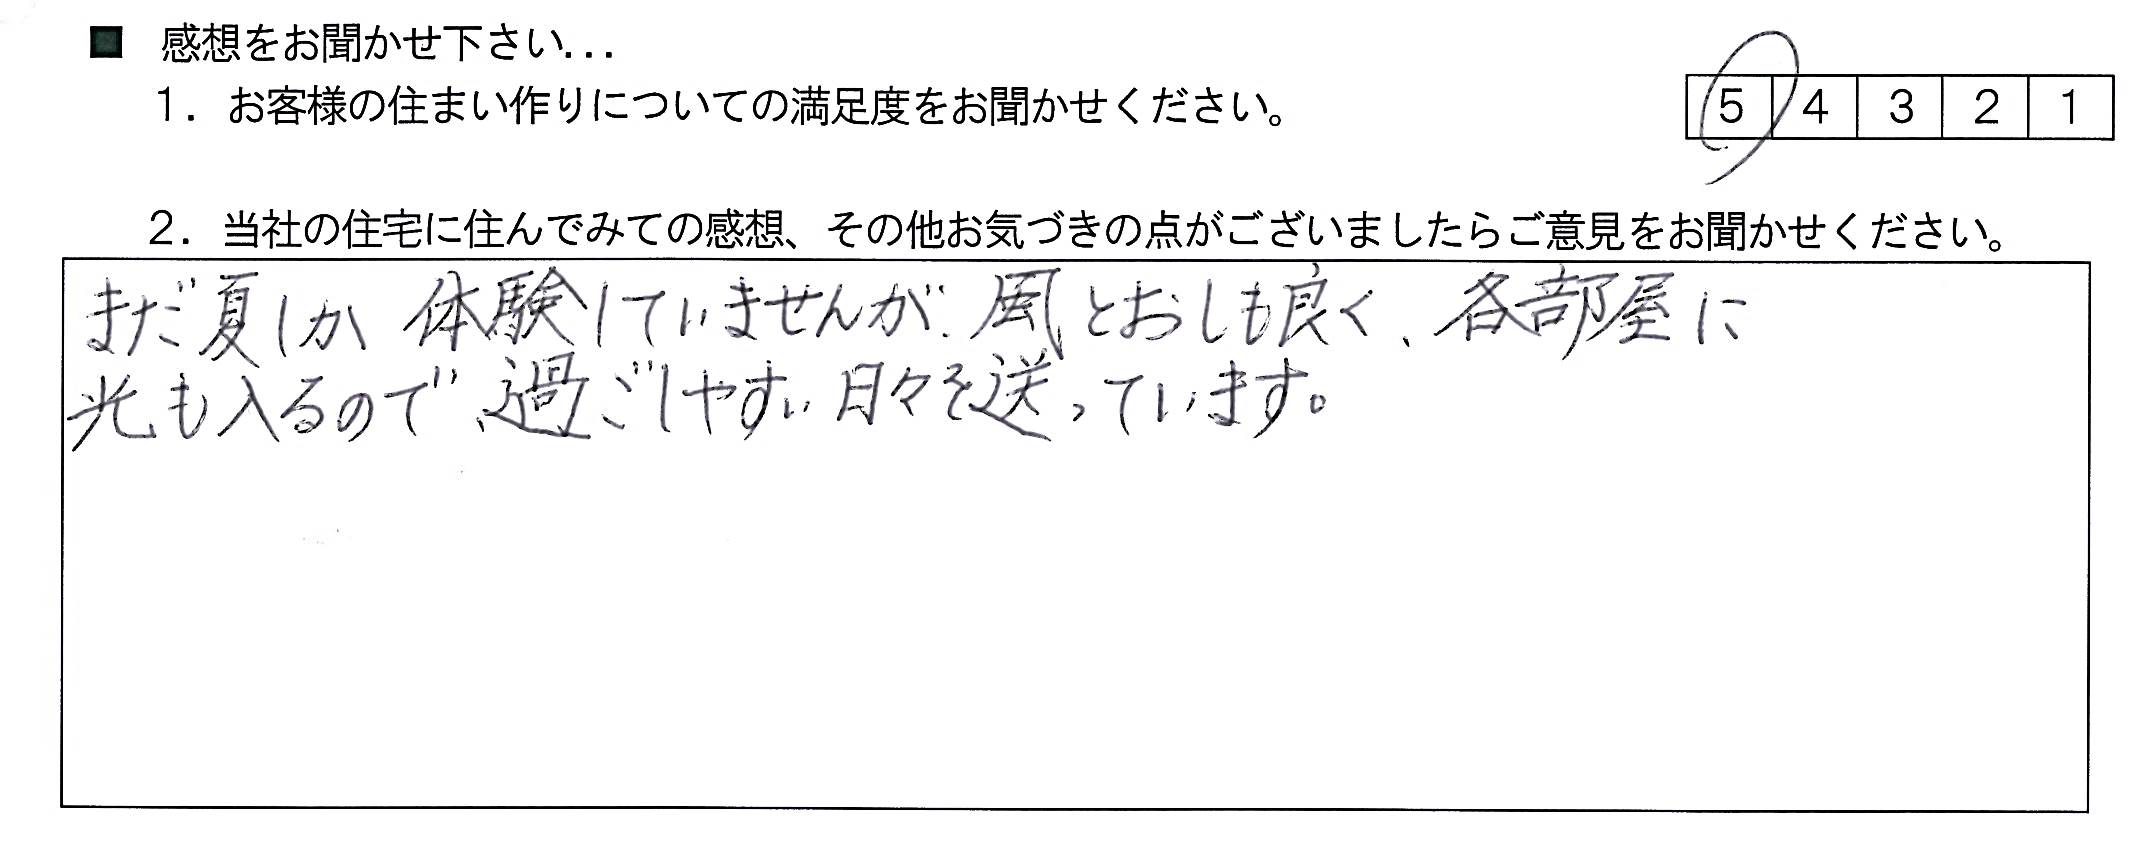 ■ 感想をお聞かせ下さい...
1．お客様の住まい作りについての満足度をお聞かせください。 5 4 3 2 1
2．当社の住宅に住んでみての感想、その他お気づきの点がございましたらご意見をお聞かせください。
まだ夏しか体験していませんが、風とおしも良く、各部屋に
光も入るので、過ごしやすい日々を送っています。